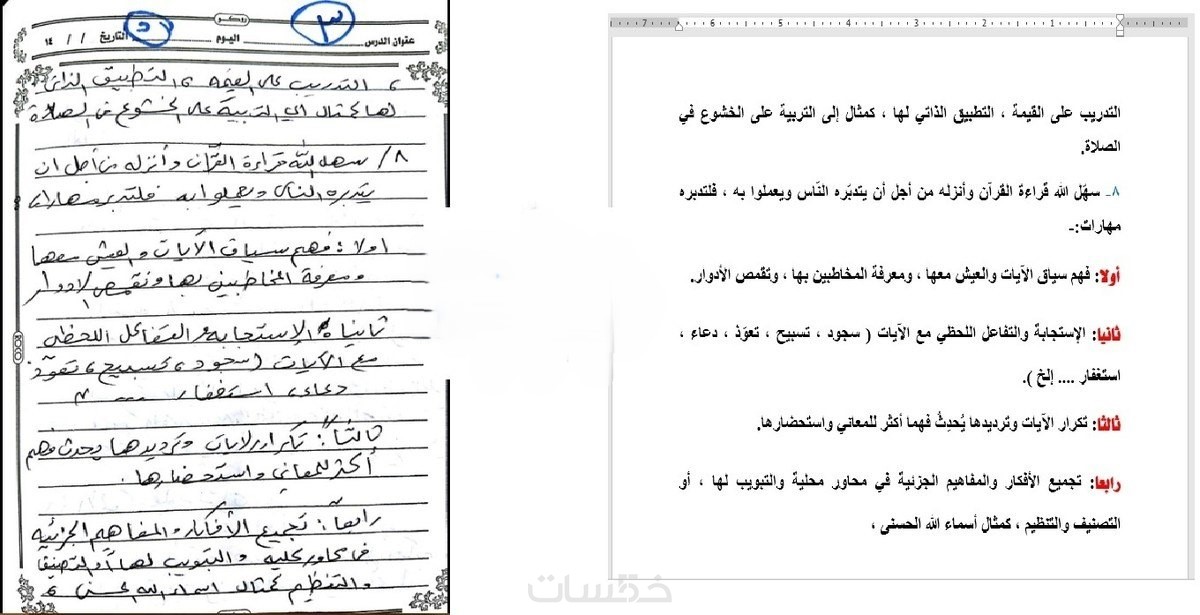 روكو
عنوان الدرس اليوم التاريخ / / ١٤
٣
٥
، التدريب على القيمة ، التطبيق الذاتي
لها كمثال أي التربية على الخشوع في الصلاة
٨/ سهل الله قراءة القرآن وأنزله من أجل ان
يتدبره الناس ويعملوا به فلتدبره مهارات
اولا : فهم سياق الآيات والعيش معها
ومعرفة المخاطبين بها وتقمص الادوار
ثانياً الإستجابة والتفاعل اللحظي
مع الآيات (سجود ، تسبيح ، تعوّذ
دعاء ، استغفار ....
ثالثاً : تكرار الايات وترديدها يحدث فهم
أكثر للمعاني واستحضارها .
رابعاً : تجميع الأفكار والمفاهيم الجزئية
في محاور محليه والتبويب لها أو التصنيف
والتنظيم كمثال اسماء الله الحسنى ،
ROCO
7 6 5 4 3 2 1
التدريب على القيمة ، التطبيق الذاتي لها ، كمثال إلى التربية على الخشوع في
الصلاة.
٨- سهّل الله قراءة القرآن وأنزله من أجل أن يتدبّره النّاس ويعملوا به ، فلتدبره
مهارات:-
أولا: فهم سياق الآيات والعيش معها ، ومعرفة المخاطبين بها ، وتقمص الأدوار.
ثانيا: الإستجابة والتفاعل اللحظي مع الآيات ( سجود ، تسبيح ، تعوّذ ، دعاء ،
استغفار .... إلخ ).
ثالثا: تكرار الآيات وترديدها يُحدِثُ فهما أكثر للمعاني واستحضارها.
رابعا: تجميع الأفكار والمفاهيم الجزئية في محاور محلية والتبويب لها ، أو
التصنيف والتنظيم ، كمثال أسماء الله الحسنى ،
خمسات